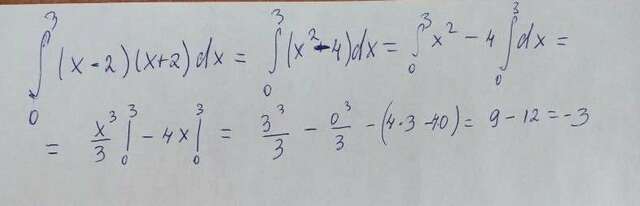 ∫₀³ (x-2)(x+2)dx = ∫₀³ (x²-4)dx = ∫₀³ x² - 4 ∫₀³ dx =
= x³/3 |₀³ - 4x |₀³ = 3³/3 - 0³/3 - (4·3-40) = 9-12 = -3